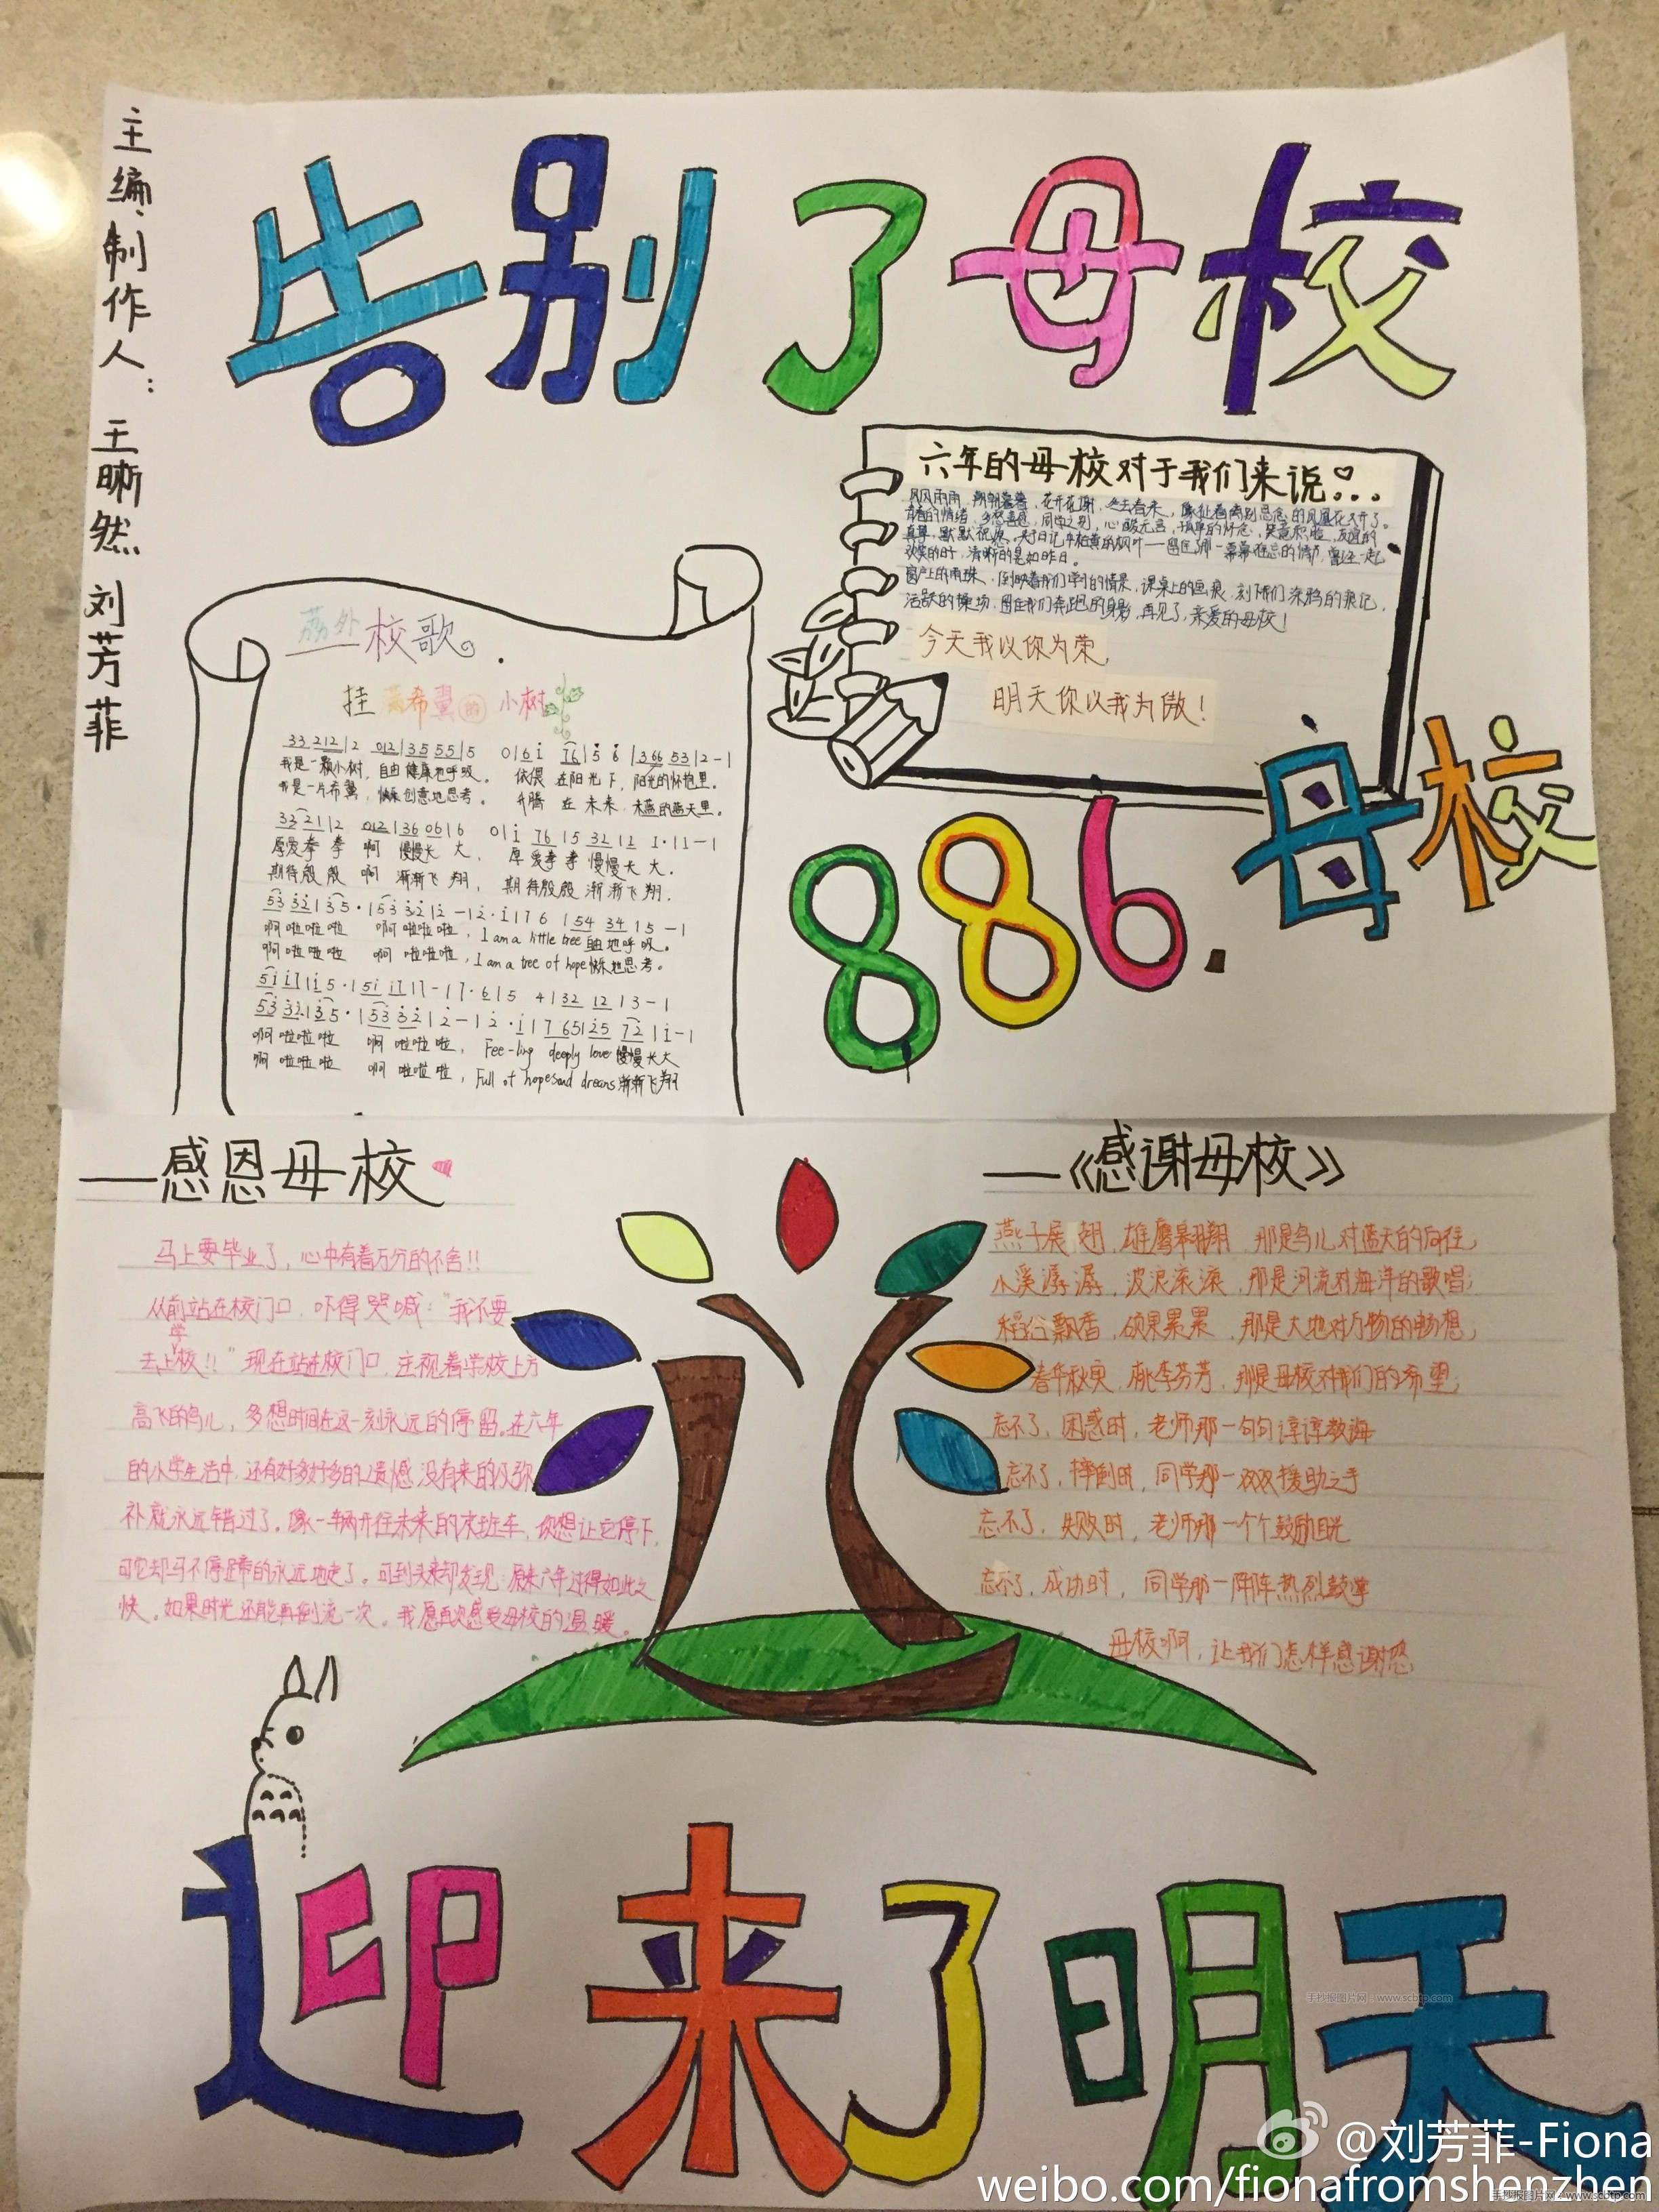 告别了母校
主编、制作人：王晰然 刘芳菲
六年的母校对于我们来说♡...
风风雨雨，朝朝暮暮，花开花谢，冬去春来，像扯着离别思念的凤凰花又开了。
窗户上的雨珠，倒映着我们学习的情景，课桌上的画痕，刻下我们涂鸦的痕记，
活跃的操场，围在我们奔跑的身影，再见了，亲爱的母校！
今天我以你为荣，
明天你以我为傲！
荔外校歌。
挂满希翼的小树
33 212|2 012|35 55|5 0|6 i 76|5 6 |3 66 53|2-|
我是一颗小树，自由健康地呼吸。 依偎 在阳光下，阳光的怀抱里。
我是一片希翼，快乐创意地思考。 升腾 在 未来，未来的蓝天里。
厚爱拳拳 啊 慢慢长大， 厚爱拳拳 慢慢长大．
期待殷殷 啊 渐渐飞翔， 期待殷殷 渐渐飞翔．
啊啦啦啦 啊啦啦啦，I am a little tree自由地呼吸。
啊啦啦啦 啊啦啦啦，I am a tree of hope快乐地思考。
啊啦啦啦 啊啦啦啦，Fee-ling deeply love慢慢长大
啊啦啦啦 啊啦啦啦，Full of hopesand dreams渐渐飞翔
886.母校
——感恩母校
马上要毕业了，心中有着万分的不舍!!
从前站在校门口，吓得哭喊："我不要
去上学校!!"现在站在校门口，注视着学校上方
高飞的鸟儿，多想时间在这一刻永远的停留。在六年
的小学生活中，还有好多好多的遗憾，没有来的及弥
补就永远错过了。像一辆开往未来的末班车，你想让它停下，
可它却马不停蹄的永远地走了。可到头来却发现：原来六年过得如此之
快。如果时光还能再倒流一次。我愿再次感受母校的温暖。
——《感谢母校》
燕子展翅，雄鹰翱翔，那是鸟儿对蓝天的向往；
小溪潺潺，波浪滚滚，那是河流对海洋的歌唱；
稻谷飘香，硕果累累，那是大地对万物的畅想；
春华秋实，桃李芬芳，那是母校对我们的希望；
忘不了，困惑时，老师那一句句谆谆教诲
忘不了，摔倒时，同学那一双双援助之手
忘不了，失败时，老师那一个个鼓励目光
忘不了，成功时，同学那一阵阵热烈鼓掌
母校啊，让我们怎样感谢您
迎来了明天
手抄报图片网 www.scbtp.com
@刘芳菲-Fiona
weibo.com/fionafromshenzhen
手抄报图片网 www.scbtp.com